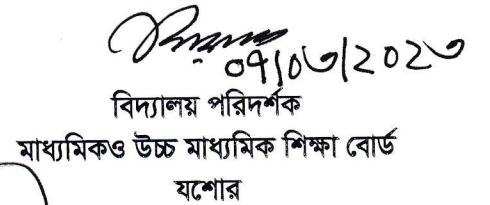 ০৭/০৩/২০২৩
বিদ্যালয় পরিদর্শক
মাধ্যমিকও উচ্চ মাধ্যমিক শিক্ষা বোর্ড
যশোর